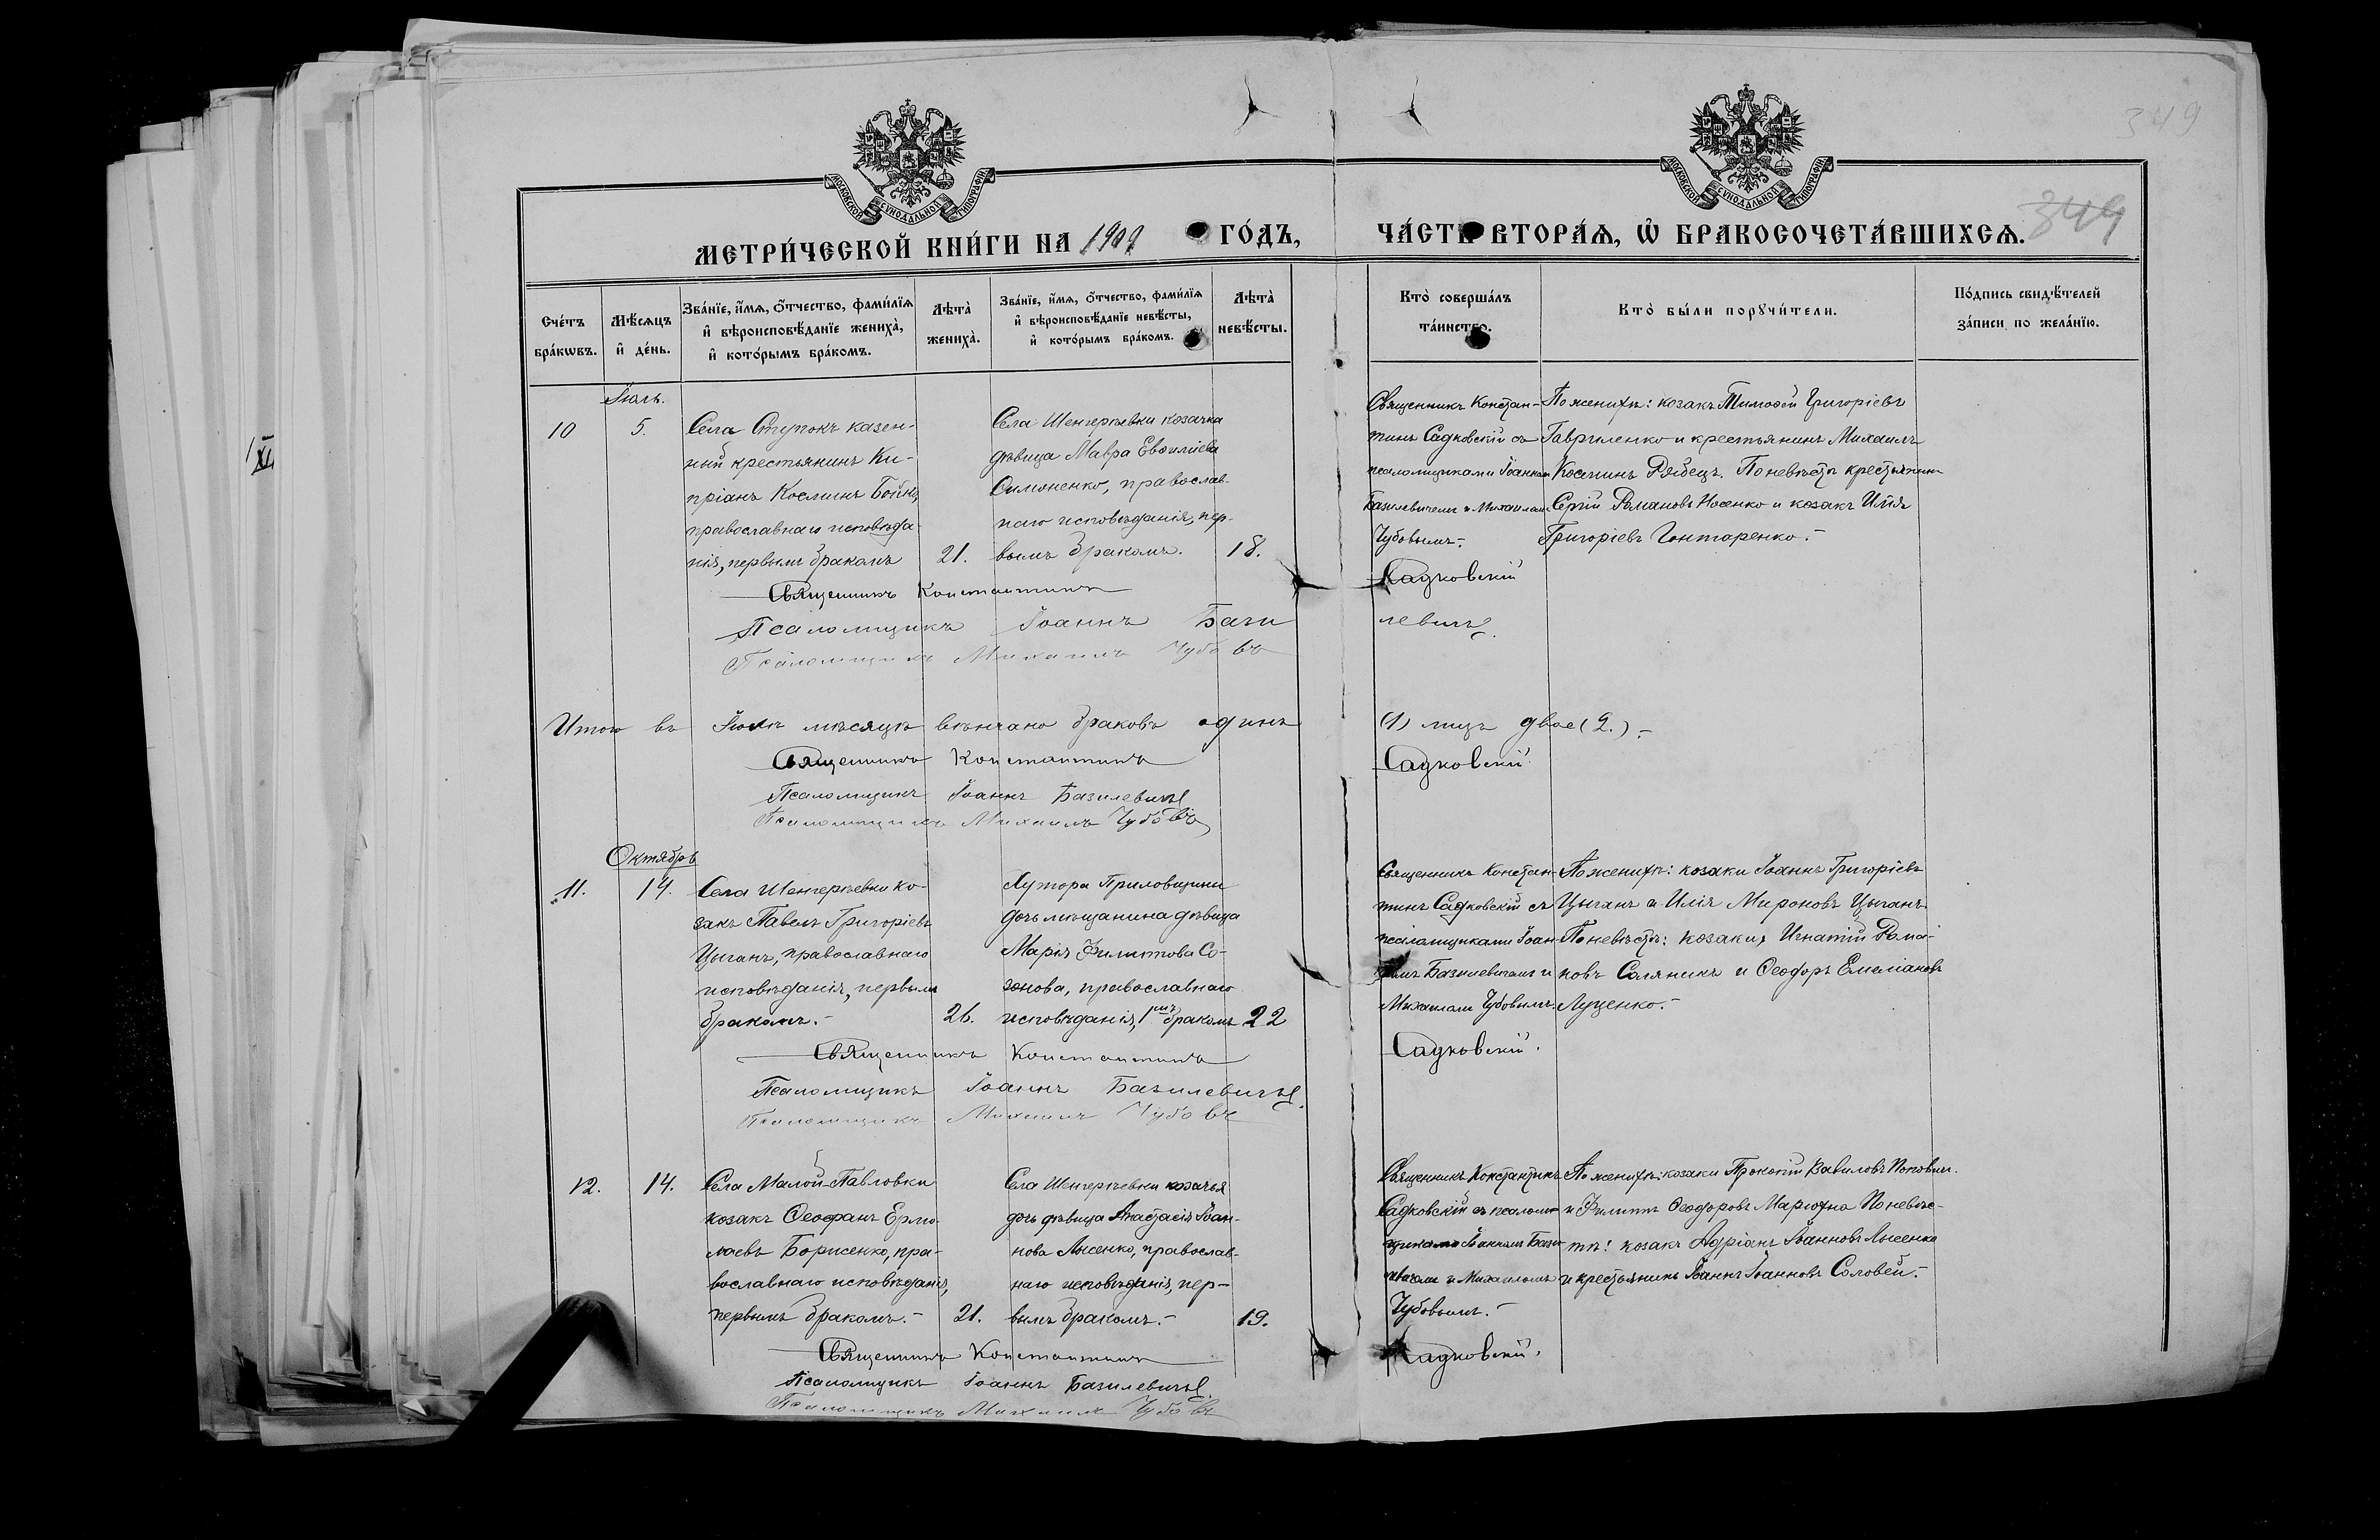 349
349
МОСКОВСКОЙ СѴНОДАЛЬНОЙ ТИПОГРАФІИ
МОСКОВСКОЙ СѴНОДАЛЬНОЙ ТИПОГРАФІИ
МЕТРИ́ЧЕСКОЙ КНИ́ГИ НА 1909 ГО́ДЪ,
ЧА́СТЬ ВТОРА́Ѧ, Ѡ҆ БРАКОСОЧЕТА́ВШИХСѦ.
Сче́тъ
бра́кѡвъ.
Мѣ́сѧцъ
и҆ де́нь.
Зва́нїе, и҆́мѧ, ѻ҆́тчество, фами́лїѧ
и҆ вѣроисповѣ́данїе жениха̀,
и҆ кото́рымъ бра́комъ.
Лѣ́та̀
жениха̀.
Зва́нїе, и҆́мѧ, ѻ҆́тчество, фами́лїѧ
и҆ вѣроисповѣ́данїе невѣ́сты,
и҆ кото́рымъ бра́комъ.
Лѣ́та̀
невѣ́сты.
Кто̀ соверша́лъ
та́инство.
Кто̀ бы́ли порꙋчи́тели.
По́дпись свидѣ́телей
за́писи по жела́нїю.
XI
Іюль.
10
5.
Села Ступокъ казен-
ный крестьянинъ Ки-
пріанъ Косминъ
православнаго исповѣда-
нія, первымъ бракомъ
21.
Села Шенгерѣевки козачка
дѣвица Мавра
Симоненко, православ-
наго исповѣданія, пер-
вымъ бракомъ.
18.
Священникъ Констан-
тинъ Садковскій съ
псаломщиками Іоанномъ
Базилевичемъ и Михаиломъ
Чубовымъ.
По женихѣ: козакъ Тимоѳей Григоріевъ
Гавриленко и крестьянинъ Михаилъ
Косминъ Рябецъ. По невѣстѣ крестьянинъ
Сергій Романовъ Носенко и козакъ Илія
Григоріевъ Гонтаренко.
Священникъ Константинъ Садковскій
Псаломщикъ Іоаннъ Базилевичъ.
Псаломщикъ Михаилъ Чубовъ
Итого въ Іюлѣ мѣсяцѣ вѣнчано браковъ одинъ (1) лицъ двое (2.)
Священникъ Константинъ Садковскій
Псаломщикъ Іоаннъ Базилевичъ
Псаломщикъ Михаилъ Чубовъ
Октябрь
11.
14.
Села Шенгерѣевки ко-
закъ Павелъ Григоріевъ
Цыганъ, православнаго
исповѣданія, первымъ
бракомъ.
26.
Хутора Приловщины
дочь мѣщанина дѣвица
Марія Филиппова Со-
зонова, православнаго
исповѣданія, 1мъ бракомъ
22
Священникъ Констан-
тинъ Садковскій съ
псаломщиками Іоан-
номъ Базилевичемъ и
Михаиломъ Чубовымъ.
По женихѣ: козаки Іоаннъ Григоріевъ
Цыганъ и Илія Мироновъ Цыганъ.
По невѣстѣ: козаки Игнатій Рома-
новъ Соляникъ и Ѳеодоръ Емеліановъ
Луценко.
Священникъ Константинъ Садковскій.
Псаломщикъ Іоаннъ Базилевичъ.
Псаломщикъ Михаилъ Чубовъ
12.
14.
Села Малой-Павловки
козакъ Ѳеофанъ Ермо-
лаевъ Борисенко, пра-
вославнаго исповѣданія,
первымъ бракомъ.
21.
Села Шенгерѣевки козачья
дочь дѣвица Анастасія Іоан-
нова Лысенко, православ-
наго исповѣданія, пер-
вымъ бракомъ.
19.
Священникъ Константинъ
Садковскій съ псалом-
щиками Іоанномъ Бази-
левичемъ и Михаиломъ
Чубовымъ.
По женихѣ: козаки Прокопій Вавиловъ Поповъ
и Филиппъ Ѳеодоровъ Марюхно По невѣс-
тѣ: козакъ Адріанъ Іоанновъ Лысенко
и крестьянинъ Іоаннъ Іоанновъ Соловей.
Священникъ Константинъ Садковскій.
Псаломщикъ Іоаннъ Базилевичъ.
Псаломщикъ Михаилъ Чубовъ